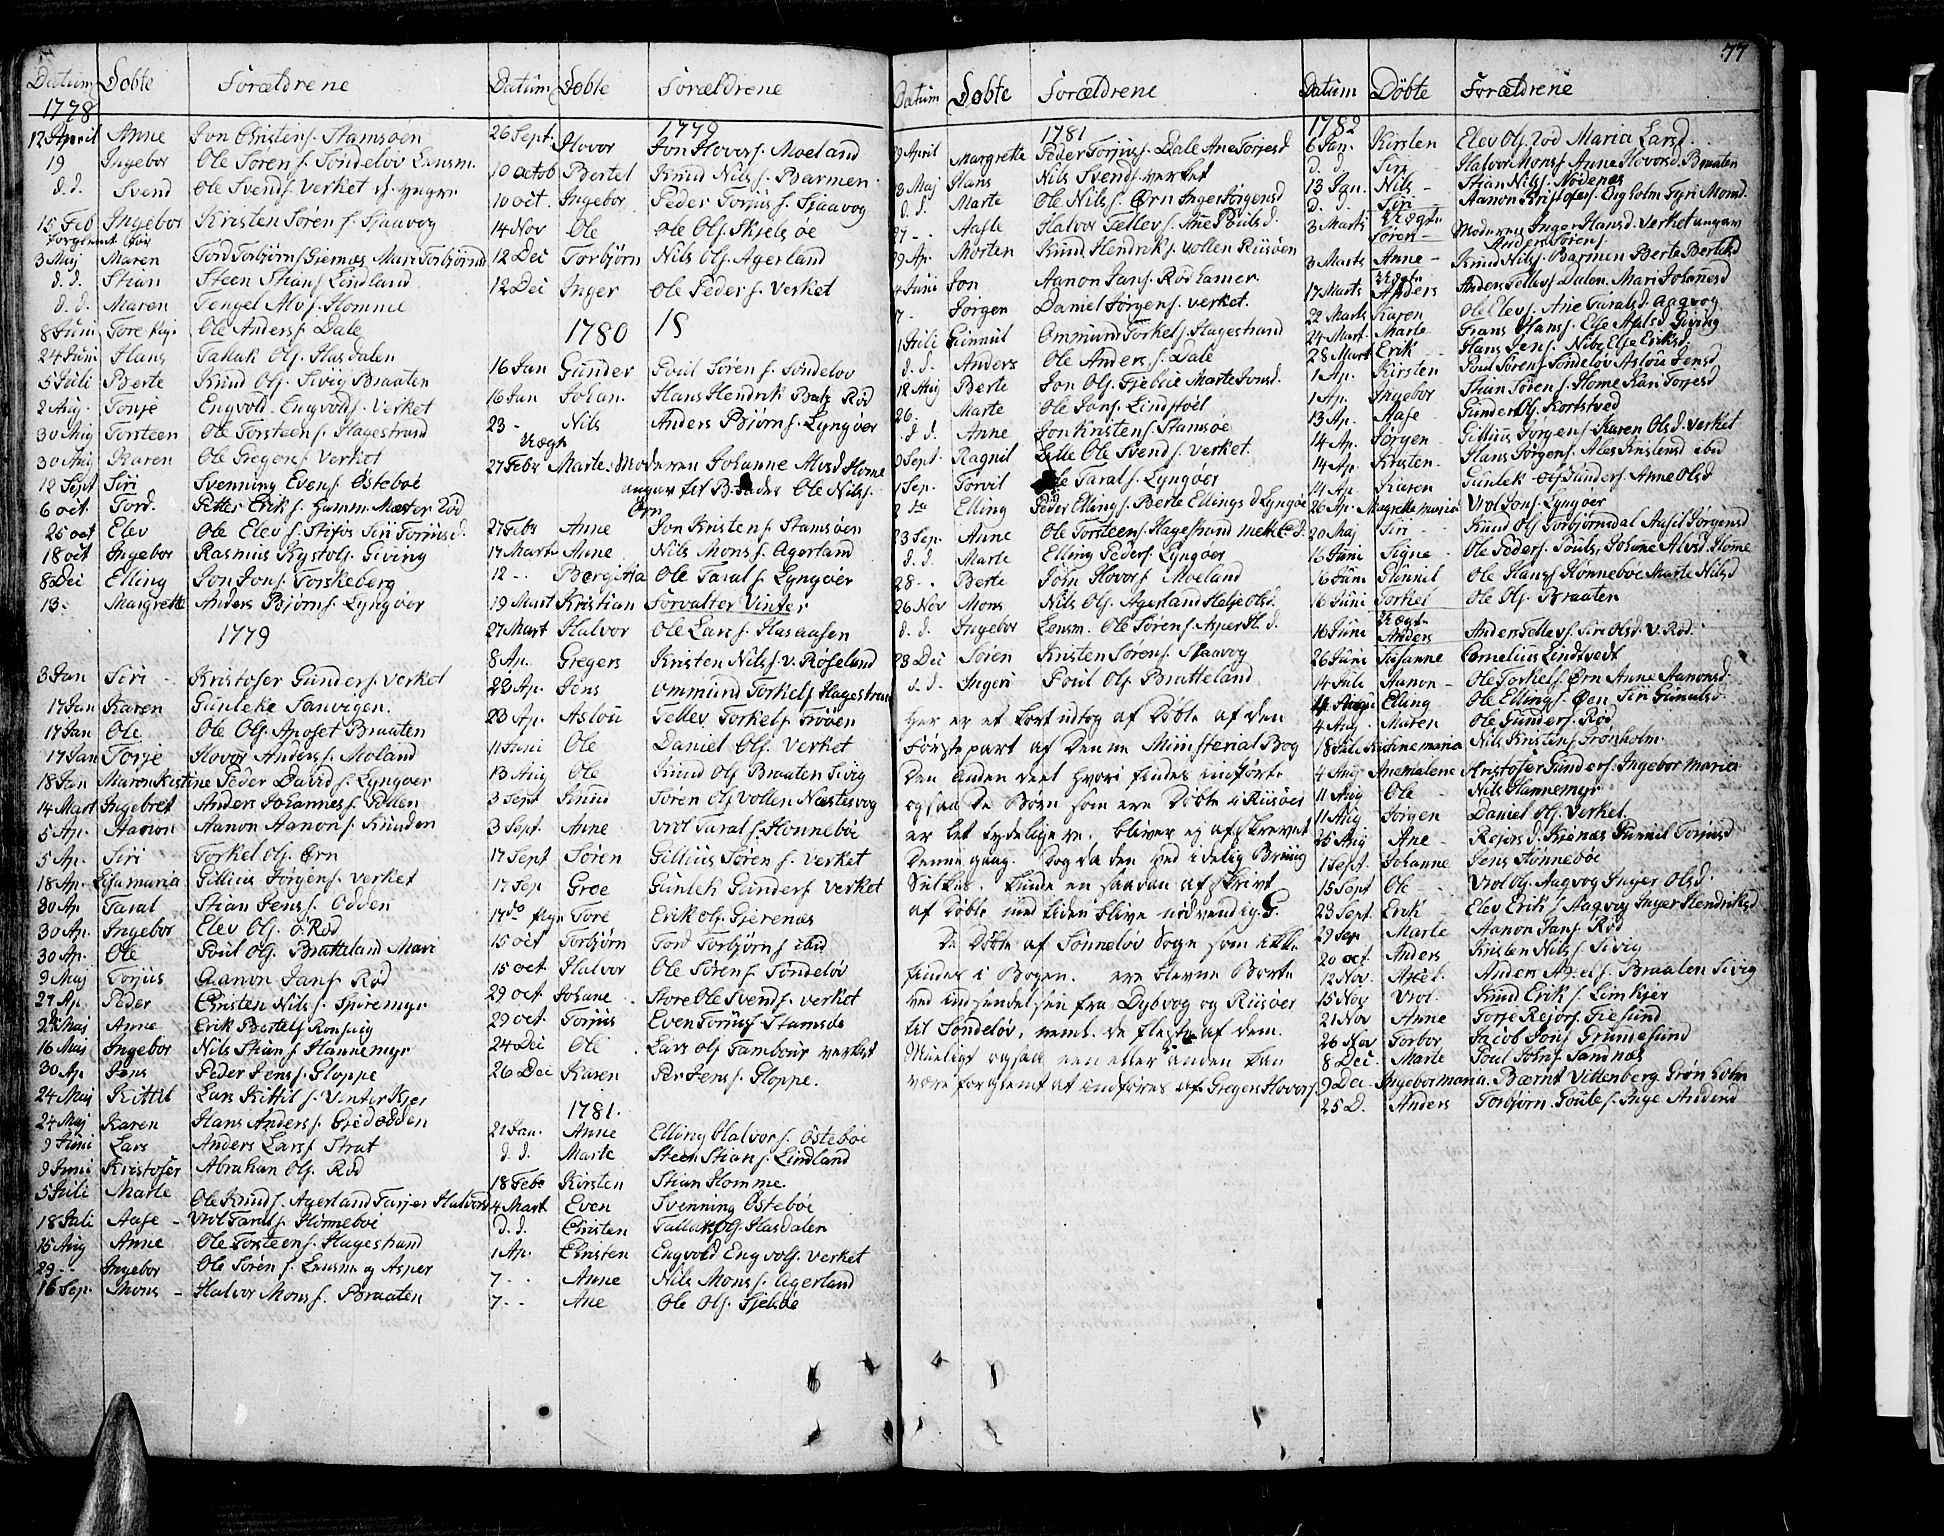 77
Datum Døbte Forældrene
1778
12 April Anne Jon Christens. Stamsøen
19 Ingebor Ole Sørens. Søndeløv Lensm.
d. d. Svend Ole Svends. Verket
15 Feb Ingebor Kristen Sørens. Sjaavog
3 Maj Maren Tord Torbjørns. Giernæs Mari Torbjørnsd
d. d. Stian Steen Stians. Lindland
d. d. Maren Tengel Alvs. Homme
8 Juni Tore Ole Anders. Dale
24 Juni Hans Tallak Ols. Hasdalen
5 Juli Berte Knud Ols. Sivig Braaten
2 Aug. Tonje Engvold Engvolds. Verket
30 Aug Torsteen Ole Torsteens. Hagestrand
30 Aug Karen Ole Gregers. Verket
12 Sept Siri Svenning Evens. Østebøe
6 oct. Tord. Petter Eriks. Hamm. Mæster Rød
25 oct Elev Ole Elevs. Stifos Siri Torjusd.
18 oct Ingebor Rasmus Krystols. Giving
8 Dei Elling Jon Jons. Torskeberg
13 - Margrette Anders Bjørns. Lyngøer
1779
3 Jan Siri - Kristofer Gunders. Verket
17 Jan Karen Gunleke Sanvigen.
17 Jan Ole Ole Ols. Aposet Braaten
17 Jan Torje Hovor Anders. Moland
18 Jan Maren Kistine Peder Davids. Lyngøer
14 Mart Ingebret Anders Johannes. Pollen
5 Ap. Aanon Aanon Aanons. Kunden
5 Ap. Siri Torkel Ols. Ørn
18 Ap. Lisa maria Gillius Jørgens. Verket
30 Ap Taral Stian Jens. Odden
30 Ap. Ingebor Elev Ols. ø. Rød
30 Ap. Ole Poul Ols. Bratteland Mari
9 Maj Torjus Aanon Jans. Rød
27 Ap. Peder Christen Nils. Spiremyr
Maj Anne Erik Bertels. Ronsvig
16 Maj Ingebor Nils Stians. Hannemyr
30 Ap Jens Peder Jens. Gloppe
24 Maj Kittil Lars Kittils. Vinterkjer
24 Maj Karen Hans Anders. Gjedodden
9 Juni Lars Anders Lars. Strat
9 Juni Kristofer Abrahan Ols. Rød
5 Juli Marte Ole Knuds. Agerland Tarjer Halvorsd
18 Juli Aase - Vrol Tarals. Hønnebøe
15 Aug Anne Ole Torsteens. Hagestrand
29 - Ingebor Ole Sørens. Lensm. og Asper
16 Sep. Mons - Halvor Mons. Braaten
Datum Døbte Forældrene
1779
26 Sept. Hovor Jon Hovors. Moeland
10 octob Bertel Knud Nils. Barmen
10 oct. Ingebor Peder Torjus. Sjaavog
14 Nov Ole Ole Ols. Skjelsøe
12 Dei Torbjørn Nils Ols. Agerland
12 Dei Inger Ole Peders. Verket
1780
16 Jan Gunder Poul Sørens. Søndeløv
16 Jan Johan. Hans Hendrik Batz Rød
23 - Nils Anders Bjørns. Lyngøer
Uægt
27 Febr Marte. Moderen Johanne Alvsd Home
angav til B. fader Ole Nils.
Ørn
27 Febr Anne Jon Kristens. Stamsøen
17 Mart Anne Nils Mons. Agerland
12 - Bergitta Ole Tarals. Lyngøer
19 Mart Kristian Forvalter Vinter
27 Mart Halvor Ole Lars. Hasaasen
8 Ap. Gregers Kristen Nils. v. Røseland
23 Ap. Jens Ommund Torkels. Hagestran
23 Ap. Aslou Tellev Torkels. Trøen
11 Juni Ole Daniel Ols. Verket
13 Aug Ole Knud Ols. Braaten Sivig
3 Sept Knud Søren Ols. Vollen Næstesvog
3 Sept. Anne Vrol Tarals. Hønnebøe
17 Sept Søren Gillius Sørens. Verket
17 Sep Groe Gunlek Gunders. Verket
17 do Tore Erik Ols. Gjerenæs
15 oct Torbjørn Tord Torbjørns. ibid
15 oct. Halvor Ole Sørens. Søndeløv
29 oct Johane Store Ole Svends. Verket
29 oct. Torjus Even Torjus. Stamsøe
24 Dei Ole Lars Ols. Tambour Verket
26 Dei Karen Per Jens. Gloppe.
1781.
21 Jan. Anne Elling Halvors. Østebøe
d. d. Marte Steen Stians. Lindland
18 Febr Kirsten Stian Homme.
4 Mart Even Svenning Østebøe
d. d. Christen Tallak Ols. Hasdalen
1 Ap. Christen Engvold Engvols. Verket
7 - - Anne Nils Mons. Agerland
7 - - Ane Ole Ols. Sjelsøe
Datum Døbte Forældrene
1781
29 April Margrette Peder Torjus. Dale Ane Torjesd
Maj Hans Nils Svends. Verket
d. d. Marte Ole Nils. Ørn Inger Jørgensd
27 - - Aasle Halvor Tellevs. Ane Poulsd
29 Ap. Morten Knud Hendriks. Vollen Riisøen
4 Juni Jon Aanon Jans. Rød
7 - Jørgen Daniel Jørgens. Verket.
1 Juli Gunnil Ommund Torkels. Hagestrand
d. d. Anders Ole Anders. Dale
12 Aug Berte Jon Ols. Gjebue Marte Jonsd.
26. Marte Ole Jons. Lindstøel
d. d. Anne Jon Kristens. Stamsøe
9 Sept. Ragnil Lille Ole Svends. Verket.
1 Sep. Torvil Ole Tarals. Lyngøer
Elling Peder Ellings. Berte Ellingsd Lyngøe
23 Sep. Anne Ole Torsteens. Hagestrand Mette E. d.
d. d. Marte Elling Peders. Lyngøer
28 - - Berte Jørn Hovors. Moeland
26 Nov Mons Nils Ols. Agerland Helje Olsd.
d. d. Ingebor Lensm. Ole Sørens. Asper H. d.
23 Dei Søren Kristen Sørens. Sjaavog
d. d. Ingeri Poul Ols. Bratteland
Her er et kort udtog af Døbte af den
første part af denne Ministerial Bog
den anden deel hvori findes indførte
ogsaa de Børn som ere Døbte i Riisøer
er let tydeligere. bliver ej afskrevet
denne gang. Dog da den ved idelig Brug
slides. kunde en saadan afskrivt
af Døbte med tiden blive nødvendig. G.
De Døbte af Sønneløv Sogn som ikke
findes i Bogen. ere blevne Borte
ved indsendelsen fra Dybvog og Riisøer
til Søndeløv, neml. de fleste af dem.
Mueligt ogsaa een eller anden kan
være forglemt at indføres af Gregers Hovors.
Datum Døbte Forældrene
1782
6 Jan. Kirsten Elev Ols. Rød Maria Larsd.
d. d. Siri Halvor Mons. Anne Hovorsd. Braaten
13 Jan. Nils - Stian Nils. Nødenæs
d. d. Siri - Aanon Kristofers. Engholm Gyri Monsd.
Uægte
3 Marts Søren - Moderen Inger Hansd. Verket angav
Anders Sørens.
3 Marts Anne - Knud Nils. Barmen Berte Bertelsd
Uægte
17 Marts Anders Anders Tellevs. Dalen. Mari Johannesd
22 Marts Karen Ole Elevs. Ane Taralsd. Aagvog
24 Mart. Marte - Hans. Else Axelsd Giving
28 Mart Erik - Hans Jens. Nibe Else Eriksd.
1 Ap. Kirsten Poul Sørens. Søndeløv Aslou Jensd.
1 Ap. Ingebor Stian Sørens. Home Kari Torjesd
13 Ap. Aase Gunder Ols. Kortstved
14 Ap. Jørgen - Gillius Jørgens. Karen Olsd. Verket
14 Ap. Kristen - Hans Jørgens. Ales Krislensd ibid
14 Ap. Karen Gunlek Gunders. Anne Olsd
26 Ap. Magrette maria Vrol Jons. Lyngøer
20 Maj Siri - Knud Ols. Torbjørnsdal Aasil Jørgensd
15 Juni Signe - Ole Peders. Pouls. Johanne Alvsd. Home
16 Juni Gunnil Ole Hans. Hønnebøe Marte Nilsd
16 Juni Torkel Ole Ols. Braaten
Uægte
16 Juni Anders Anders Tellevs. Siri Olsd. V. Rød.
26 Juni Susanne Cornelius Lindtvedt
14 Juli Aanon - Ole Torkels. Ørn Anne Aanonsd.
4 Aug Elling Ole Ellings. Øen Siri Gunulsd.
4 Aug. Maren Ole Gunders. Rød
18 Juli Kistine maria Nils Kristens. Grønholm.
4 Aug Ane malene Kristofer Gunders. Ingebor Maria
11 Aug Ole - Nils Hannemyr
11 Aug Jørgen Daniel Ols. Verket
25 Aug Ane - Gunnil Torjusd
1 Sept. Johanne Jens Hønnebøe
15 Sept Ole - Vrol Ols. Aagvog Inger Olsd.
23 Sept. Erik - Elev Eriks. Aagvog Inger Hendriksd
29 Sep Marte Aanon Jans. Rød
20 oct Anders Kristen Nils. Sivig
12 Nov. Axel. Anders Axels. Braaten Sivig
15 Nov Vrol. Knud Eriks. Limkjer
21 Nov Anne Torje Rejors. Giesund
26 Nov Torbor Jacob Jons. Grunesund
8 Dei Marte Poul Johns. Sandnæs
9 Dei - Ingebor maria. Bærnt Vittenberg Grønholm
25 D. Anders Torbjørn Goutes. Inge Andersd